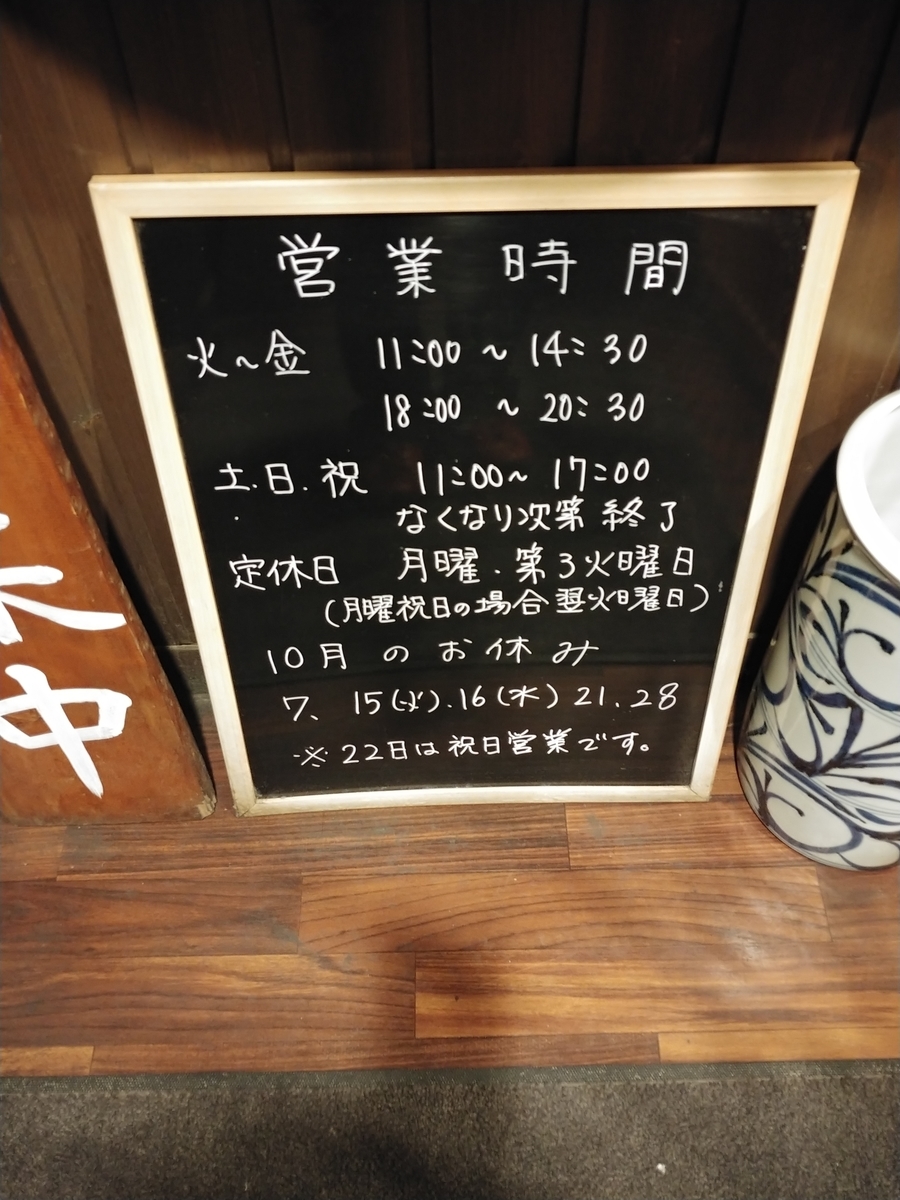 営業時間
火～金 11:00 ～ 14:30
18:00 ～ 20:30
土.日.祝 11:00～ 17:00
なくなり次第 終了
定休日 月曜.第3火曜日
(月曜祝日の場合翌火曜日)
10月 の お休み
7、15(火).16(水)21.28
※22日は祝日営業です。
中